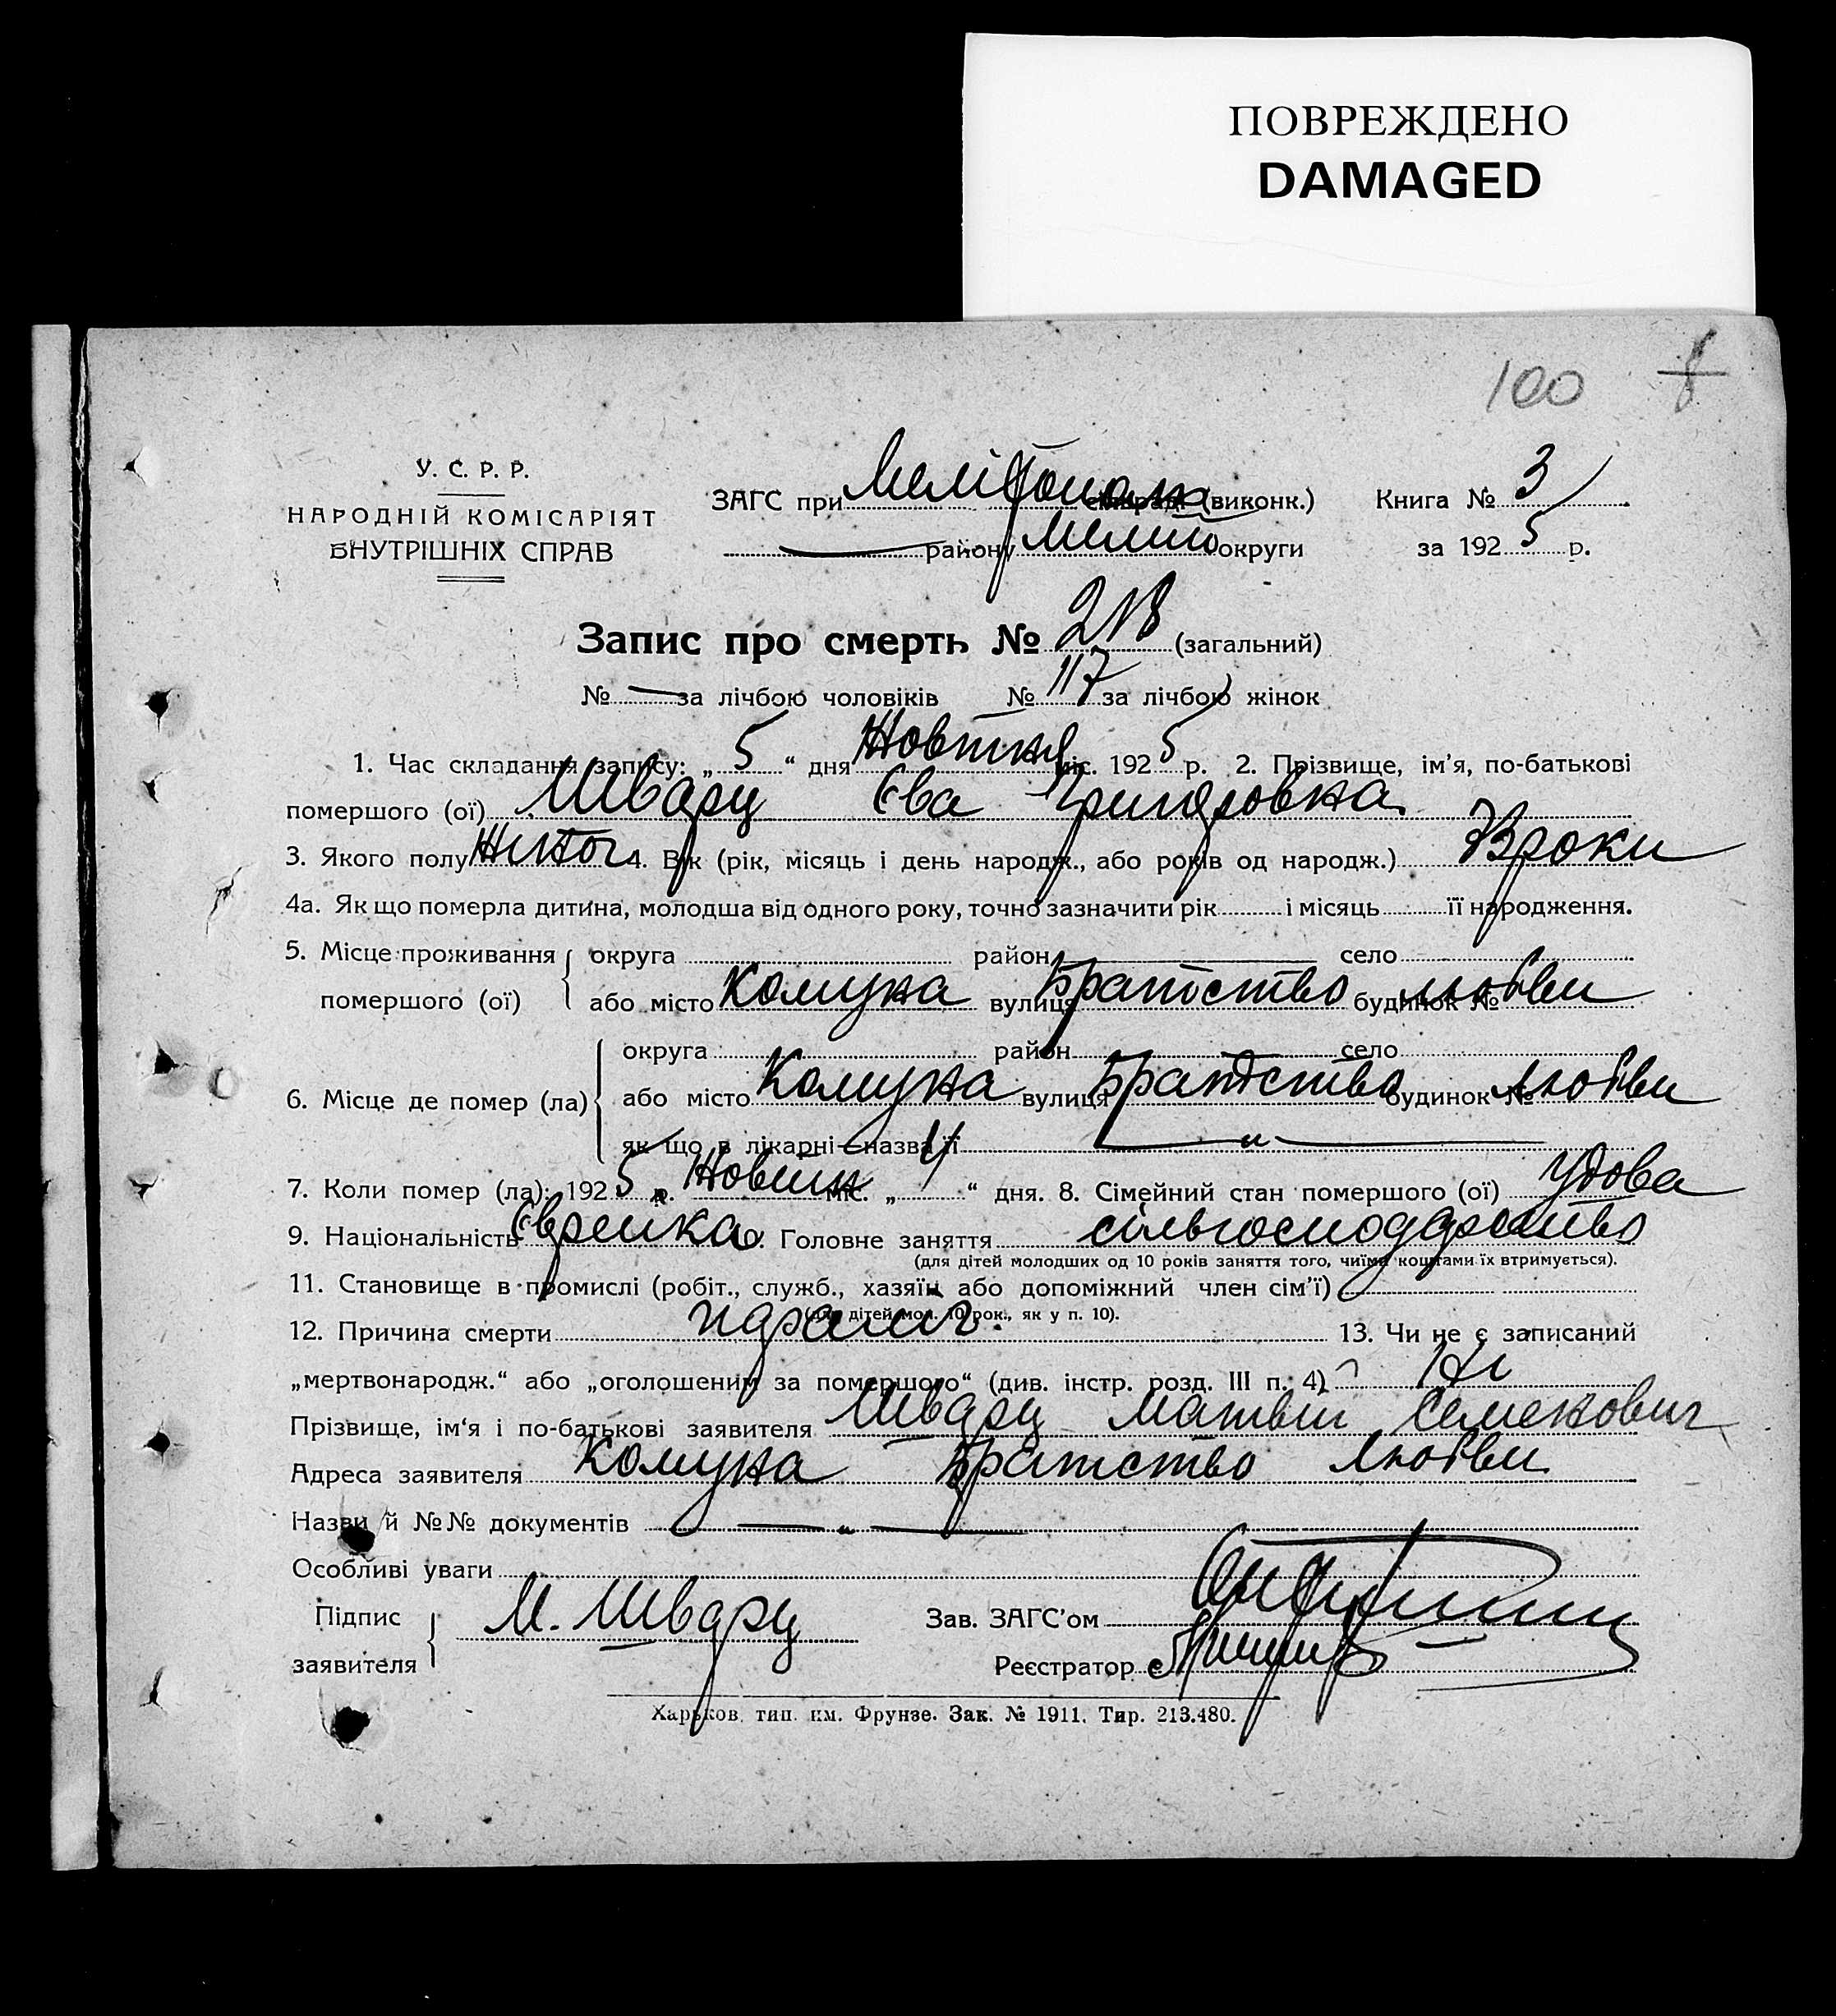 ПОВРЕЖДЕНО
DAMAGED
100
У. С. Р. Р.
НАРОДНІЙ КОМІСАРІЯТ
ВНУТРІШНІХ СПРАВ
ЗАГС при Мелітополь (виконк.) Книга № 3
району Меліт округи за 1925 р.
Запис про смерть № 218 (загальний)
№ — за лічбою чоловіків № 117 за лічбою жінок
1. Час складання запису: „ 5 “ дня Жовтня міс. 1925 р. 2. Прізвище, ім’я, по-батькові
помершого (ої) Шварц Єва Григоровна
3. Якого полу 4. Вік (рік, місяць і день народж., або років од народж.) роки
4а. Як що померла дитина, молодша від одного року, точно зазначити рік і місяць її народження.
5. Місце проживання округа район село
помершого (ої) або місто Комуна вулиця Братство будинок № любви
округа район село
6. Місце де помер (ла) або місто Комуна вулиця Братство будинок № любви
як що в лікарні—назва її — „ —
7. Коли помер (ла): 1925 р. Жовтня міс. „ 4 “ дня. 8. Сімейний стан помершого (ої) удова
9. Національність Єврейка Головне заняття сільгосподарство
(для дітей молодших од 10 років заняття того, чиїми коштами їх втримується).
11. Становище в промислі (робіт., служб., хазяїн, або допоміжний член сім’ї)
(для дітей мол. 10 рок., як у п. 10).
12. Причина смерти параліч. 13. Чи не є записаний
„мертвонародж.“ або „оголошеним за помершого“ (див. інстр. розд. III п. 4) Ні
Прізвище, ім‘я і по-батькові заявителя Шварц Матвій Семенович
Адреса заявителя Комуна Братство Любви
Назви й №№ документів — „ —
Особливі уваги
Підпис М. Шварц Зав. ЗАГС’ом
заявителя Реєстратор
Харьков, тип. им. Фрунзе. Зак. № 1911. Тир. 213.480.